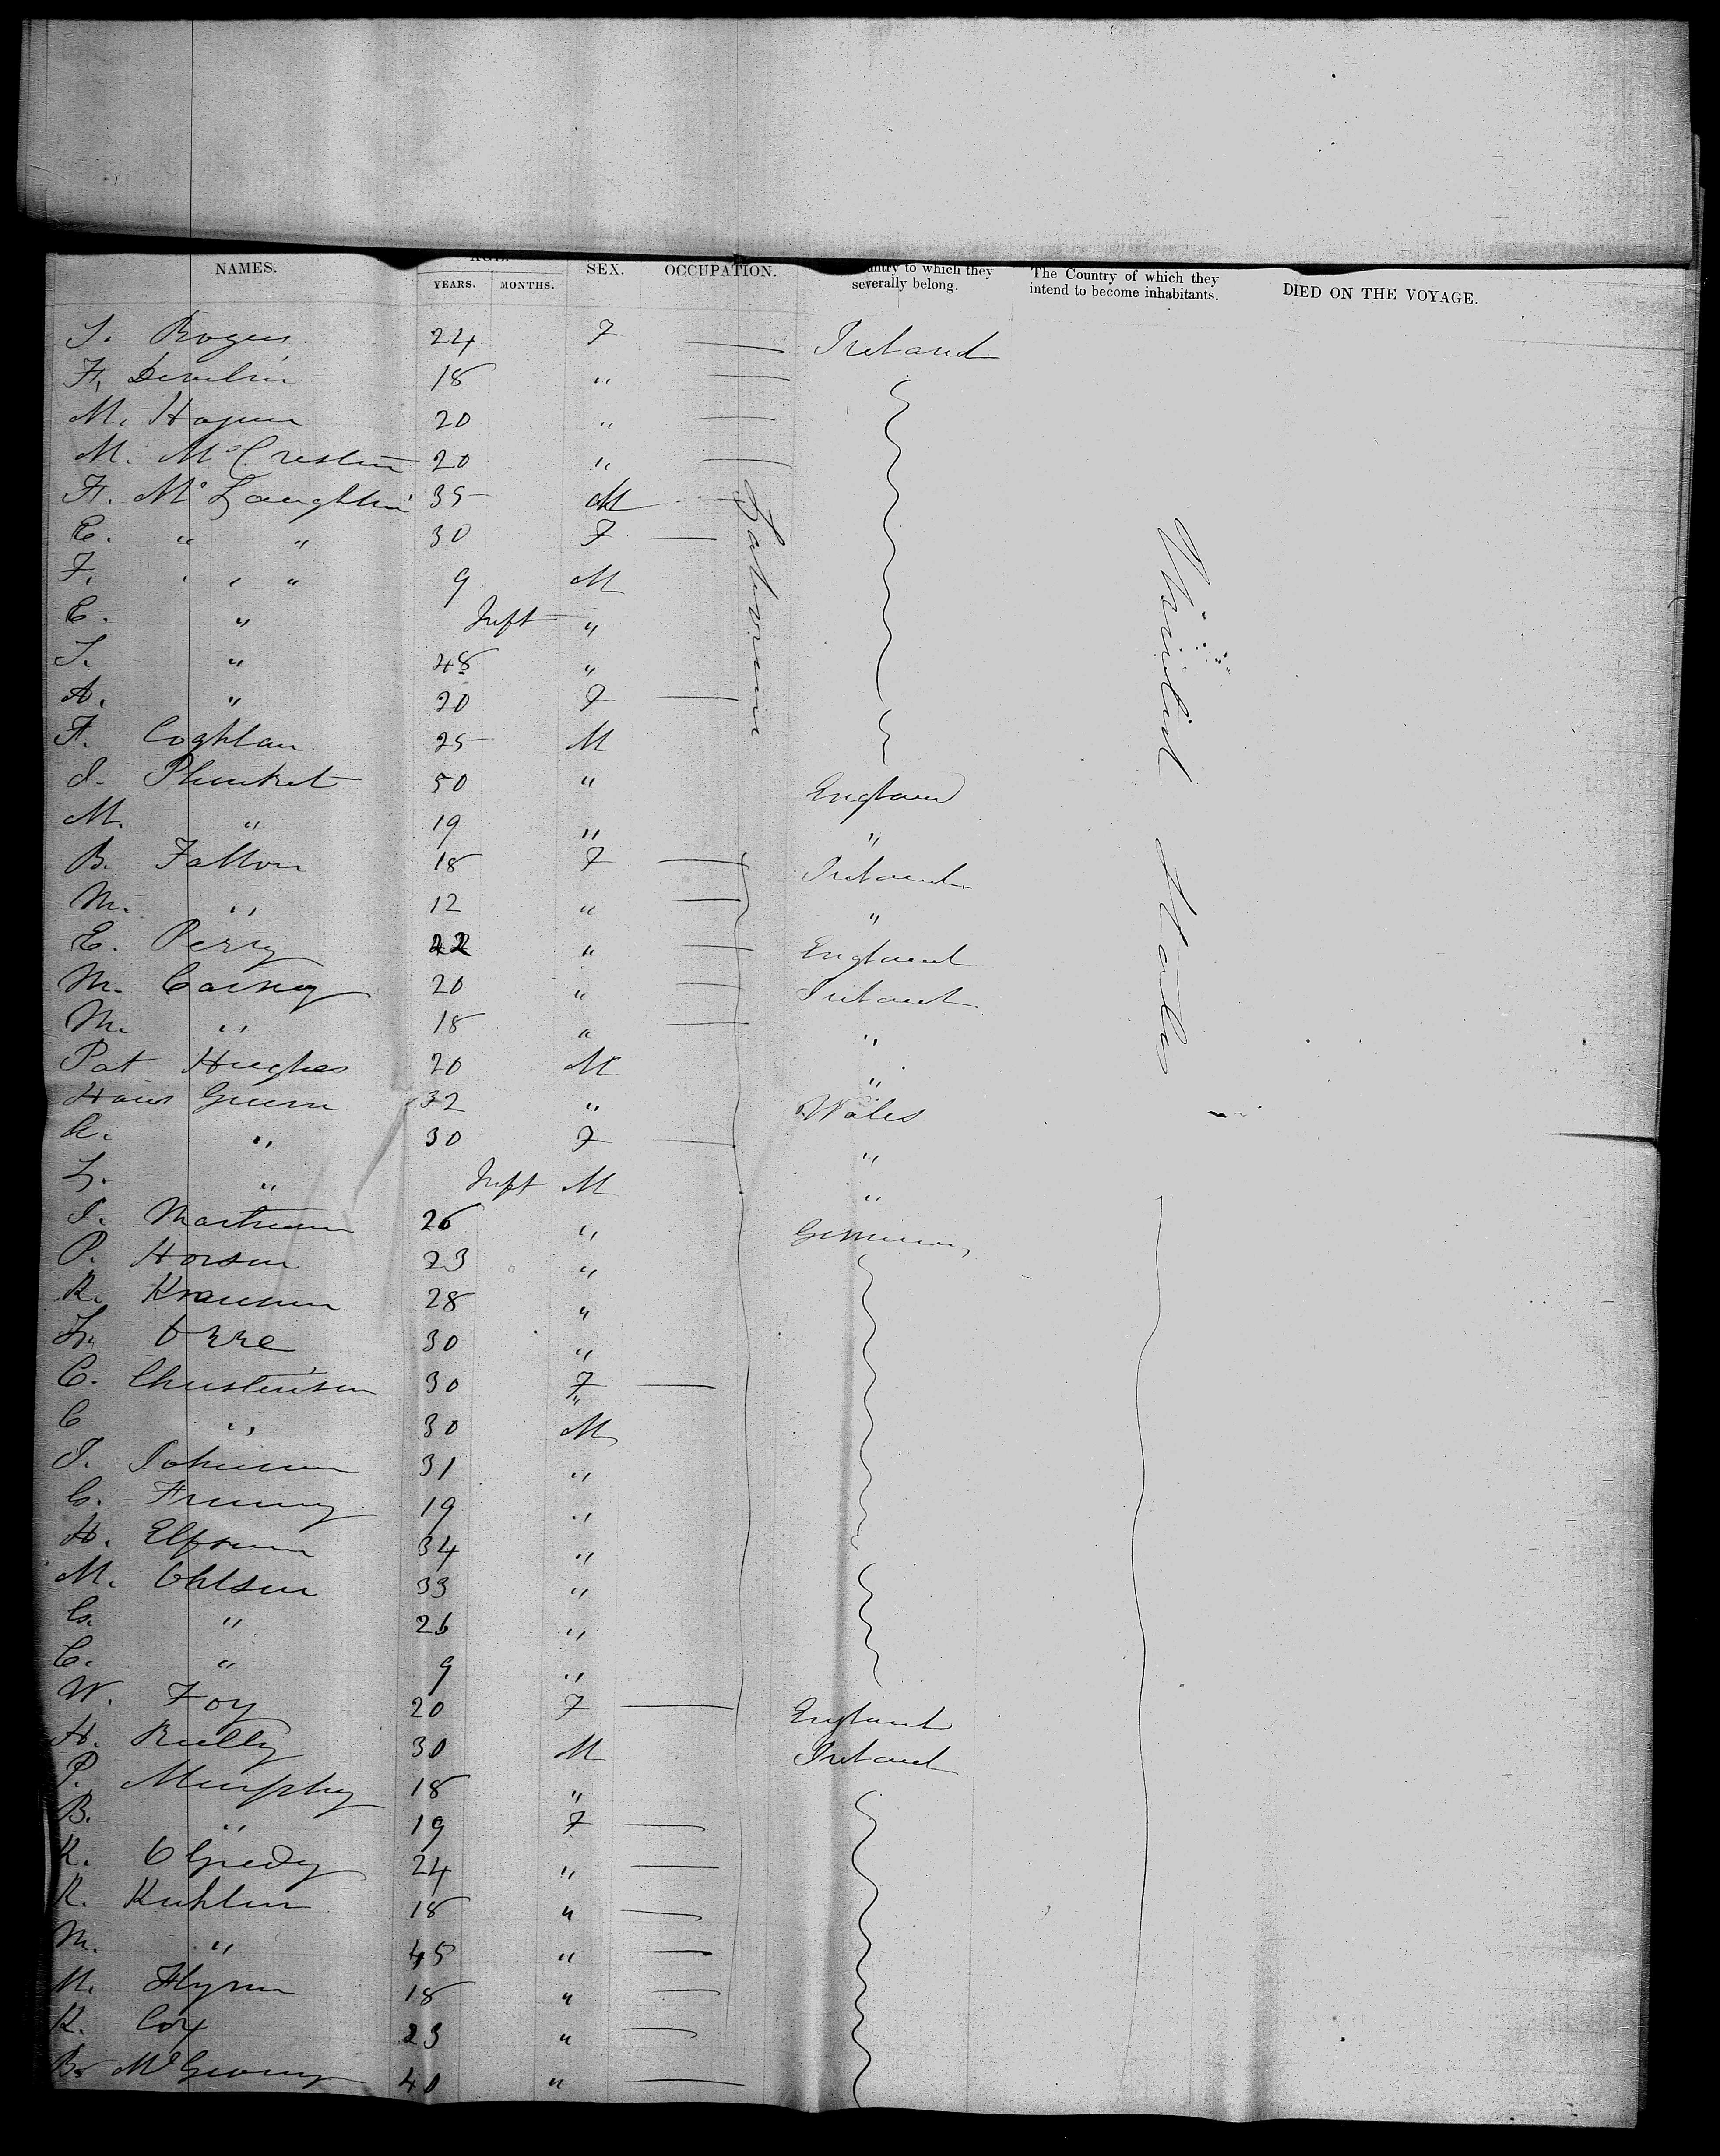 NAMES. AGE. YEARS. MONTHS. SEX. OCCUPATION. untry to which they severally belong. The Country of which they intend to become inhabitants. DIED ON THE VOYAGE.
Labourer
United States
S. Rogers 24 F — Ireland
F. Devlin 18 " —
M. Hagan 20 " —
M. 20 " —
F. McLaughlin 35 M
C. " " 30 F —
F. " " 9 M
C. " Inft "
J. " 48 "
A. " 20 F —
F. Coghlan 25 M
J. Plunket 50 " England
M. " 19 " "
B. Fallon 18 F — Ireland
M. " 12 " — "
E. Perry 22 " — England
M. Carney 20 " — Ireland
M. " 18 " — "
Pat Hughes 20 M "
Hans Green 32 " Wales
A. " 30 F — "
L. " Inft M "
J. 26 " Germany
P. 23 "
K. 28 "
L. 30 "
C. Christensen 30 F —
C " 30 M
J. Johnson 31 "
G. 19 "
H. 34 "
M. Ohlsen 33 "
G. " 26 "
C. " 9 "
W. Foy 20 F — England
H. Reilly 30 M Ireland
P. Murphy 18 "
B. " 19 F —
K. O Gredy 24 " —
K. 18 " —
M. " 45 " —
M. Flynn 18 " —
K. Cox 23 " —
B. 40 " —